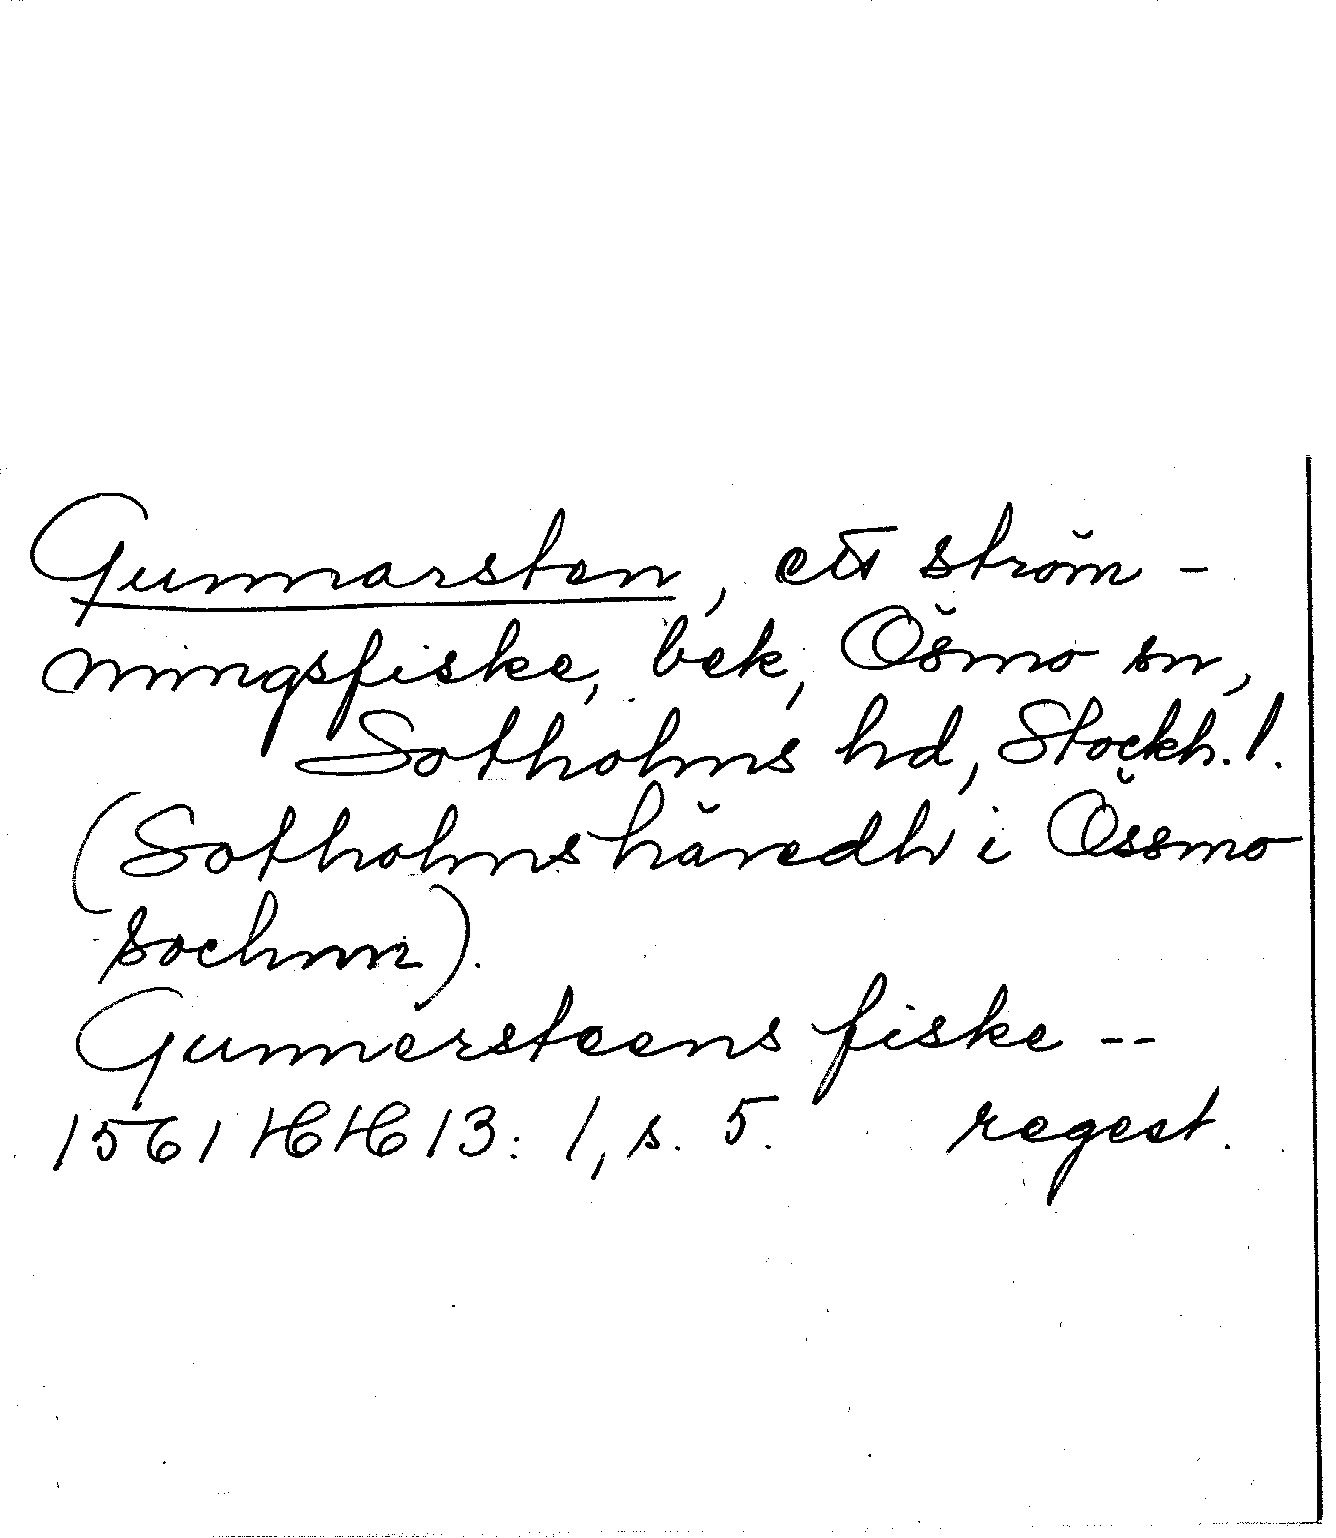 Gunnarsten, ett ström-
mingsfiske, bek, Ösmo sn,
Sotholms hd, Stockh. l.
(Sotholms häredh i Össmo
sochnn).
Gunnersteens fiske --
1561 HH 13: 1, s. 5. regest.